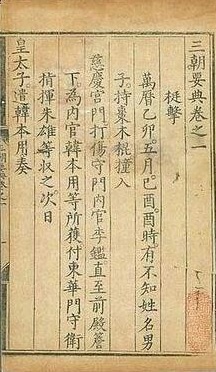 三朝要典卷之一
梃擊
萬曆乙卯五月己酉酉時有不知姓名男
子持棗木棍撞入
慈慶宮門打傷守門內官李鑑直至前殿簷
下為內官韓本用等所獲付東華門守衛
指揮朱雄等收之次日
皇太子遣韓本用奏